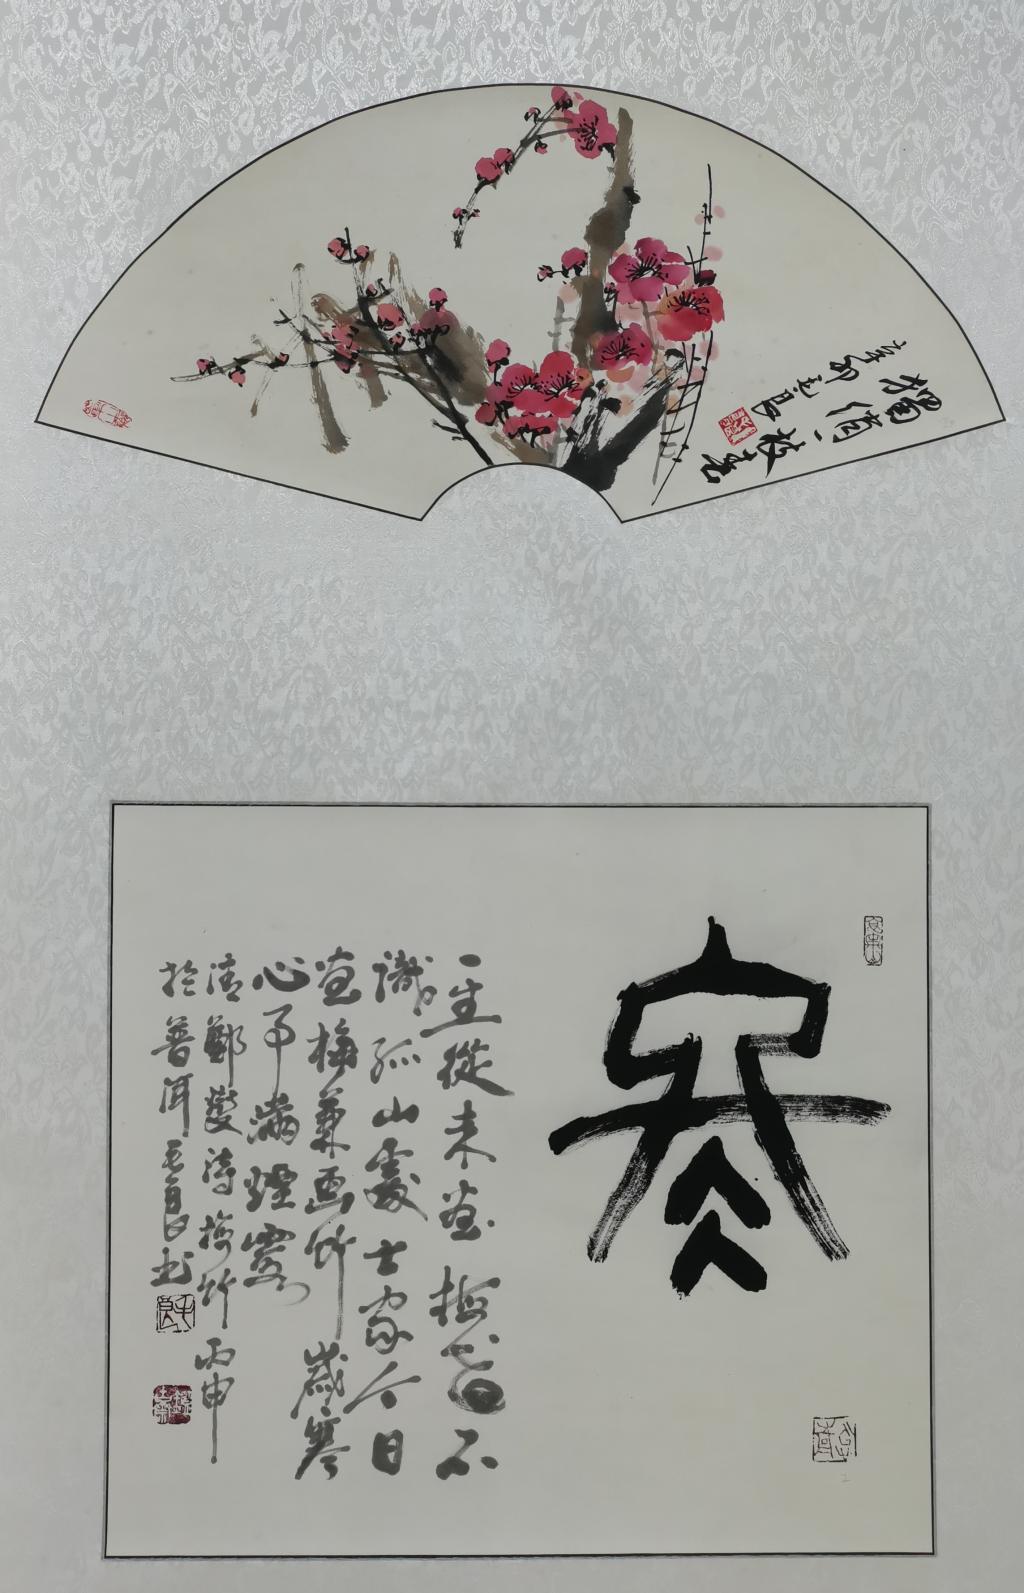 獨俏一枝春
辛卯
寒
一生從未畫梅花不
識孤山處士家今日
畫梅兼画竹歲寒
心事滿煙霞
清鄭燮詩梅竹丙申
於普洱
书